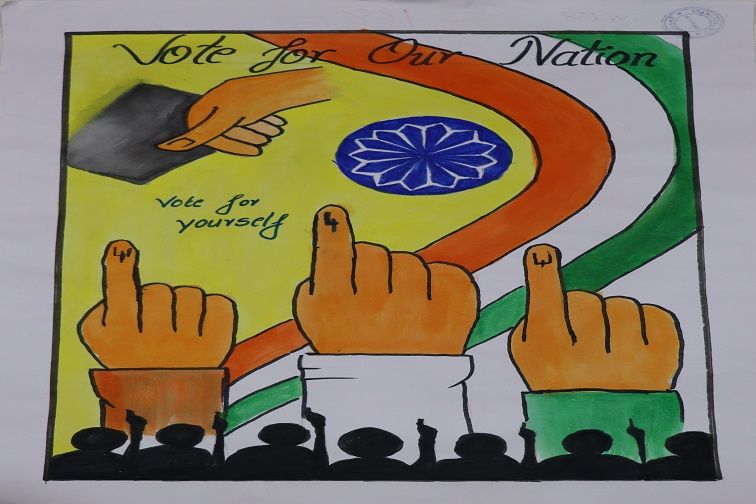 Vote for Our Nation
Vote for
yourself